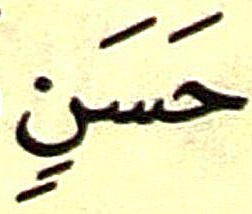 حَسَنٍ